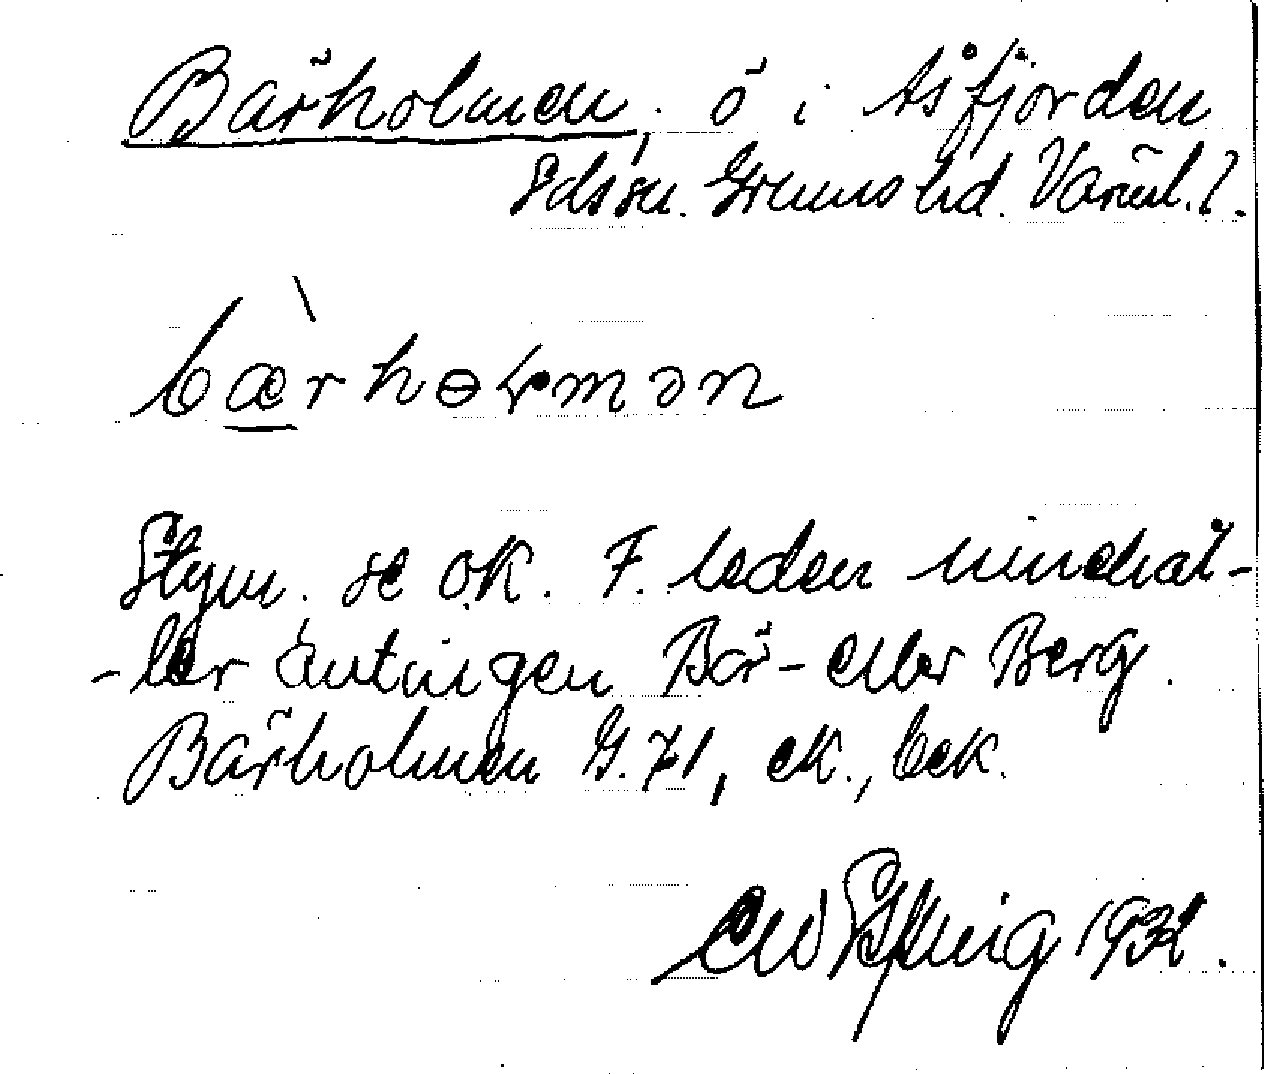 Bärholmen, ö i Åsfjorden
Eds sn. Grums hd. Värml. l.
bærhoɽmən
Etym. se OK. F. leden innehål-
-ler antingen Bär- eller Berg.
Bärholmen G. 71, ek., bek.
1932.